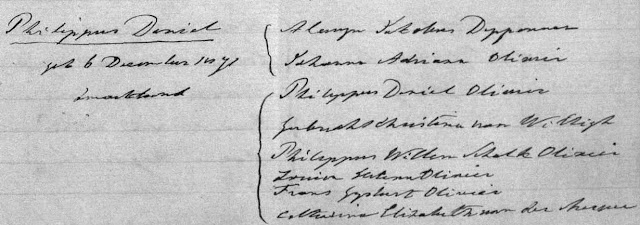 Philippus Daniel
geb 6 December
Jakobus Depponner
Johanna Adriana Olivier
Philippus Daniel Olivier
Gerbrecht Christina van Willigh
Philippus Willem Schalk Olivier
Louisa Helena Olivier
Frans Gysbert Olivier
Catharina Elizabeth van der Merwe